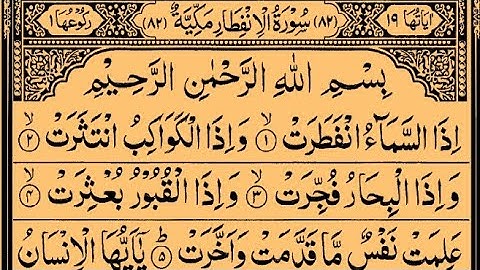 اٰيَاتُهَا ١٩ (٨٢) سُوْرَةُ الْاِنْفِطَارِ مَكِّيَّةٌ (٨٢) رُكُوْعُهَا ١
بِسْمِ اللّٰهِ الرَّحْمٰنِ الرَّحِيْمِ
اِذَا السَّمَآءُ انْفَطَرَتْ ۙ﴿۱﴾ وَ اِذَا الْكَوَاكِبُ انْتَثَرَتْ ۙ﴿۲﴾
وَ اِذَا الْبِحَارُ فُجِّرَتْ ۙ﴿۳﴾ وَ اِذَا الْقُبُوْرُ بُعْثِرَتْ ۙ﴿۴﴾
عَلِمَتْ نَفْسٌ مَّا قَدَّمَتْ وَ اَخَّرَتْ ؕ﴿۵﴾ يٰۤاَيُّهَا الْاِنْسَانُ